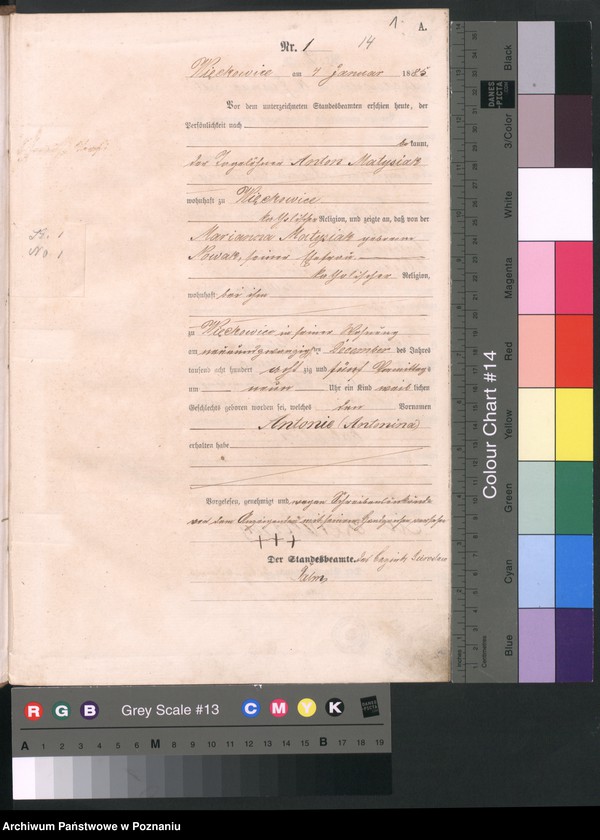 1. A.
Nr. 1 14
Więckowice am 7 Januar 1885
Vor dem unterzeichneten Standesbeamten erschien heute, der
Persönlichkeit nach
be kannt,
der Tagelöhner Anton Matysiak
wohnhaft zu Więckowice
katholischer Religion, und zeigte an, daß von der
Marianna Matysiak geborene
Nowak, seiner Ehefrau
katholischer Religion,
wohnhaft bei ihm
zu Więckowice in seiner Wohnung
am neunundzwanzigsten December des Jahres
tausend acht hundert acht zig und Vormittags
um neun Uhr ein Kind weib lichen
Geschlechts geboren worden sei, welches den Vornamen
Antonie (Antonina)
erhalten habe
Vorgelesen, genehmigt und wegen Schreibunkunde
von dem Anzeigenden mit seinem Handzeichen versehen
+++
Der Standesbeamte.
St. 1
No. 1
Colour Chart #14
Black
3/Color
White
Magenta
Red
Yellow
Green
Cyan
Blue
DANES
PICTA
.COM
Inches
Centimetres
R G B Grey Scale #13 C M Y K
A 1 2 3 4 5 6 M 8 9 10 11 12 13 14 15 B 17 18 19
Archiwum Państwowe w Poznaniu